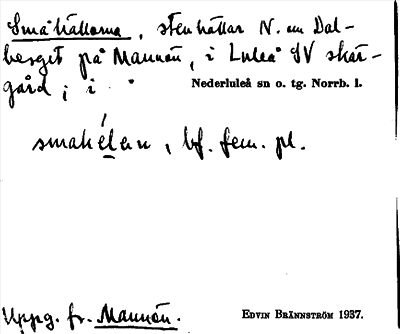 Småhällorna, stenhällar N. om Dal-
berget på Mannön, i Luleå SV skär-
gård; i "
Nederluleå sn o. tg. Norrb. l.
smahélan, bf. fem. pl.
Uppg. fr. Mannön.
EDVIN BRÄNNSTRÖM 1937.